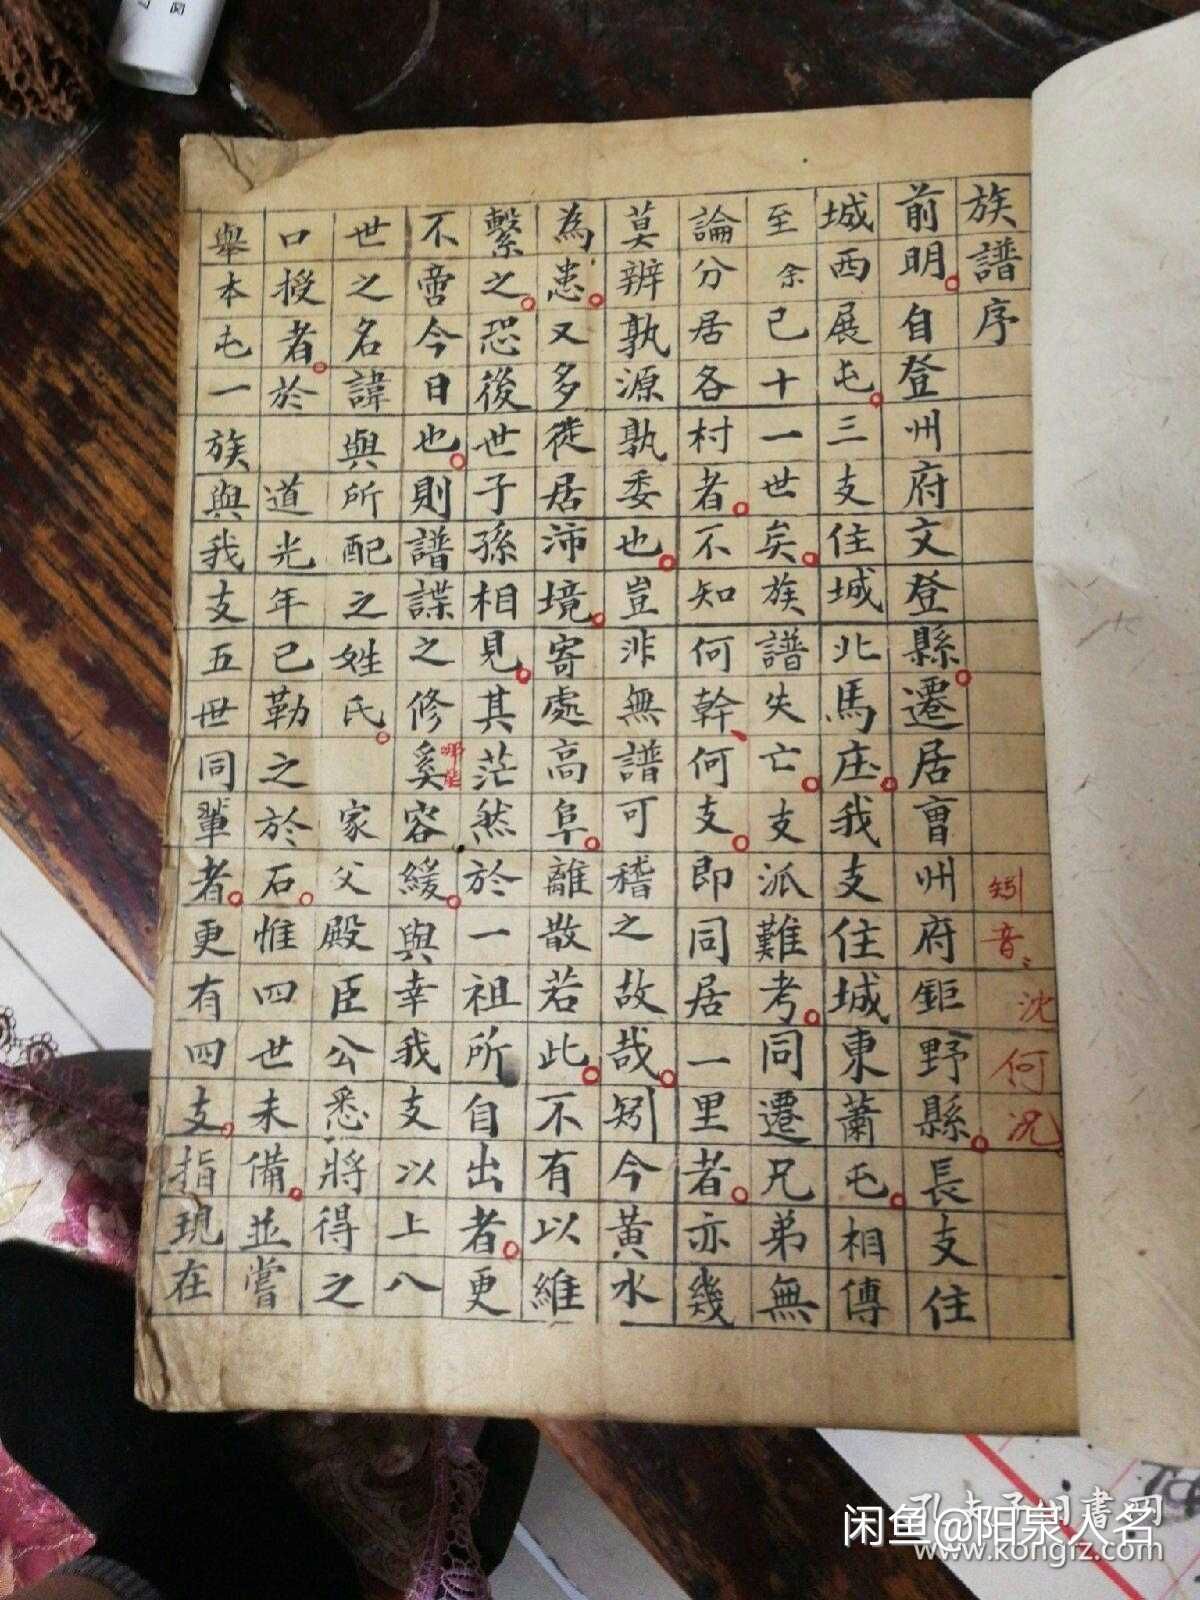 族譜序
矧音沈何况
前明自登州府文登縣遷居曹州府鉅野縣長支住
城西展屯三支住城北馬庄我支住城東蕭屯相傳
至余已十一世矣族譜失亡支派難考同遷兄弟無
論分居各村者不知何幹何支即同居一里者亦幾
莫辨孰源孰委也豈非無譜可稽之故哉矧今黃水
為患又多徙居沛境寄處高阜離散若此不有以維
繫之恐後世子孫相見其茫然於一祖所自出者更
不啻今日也則譜諜之修奚容緩與幸我支以上八
哪能
世之名諱與所配之姓氏 家父殿臣公悉將得之
口授者於 道光年已勒之於石惟四世未備並嘗
舉本屯一族與我支五世同輩者更有四支指現在
闲鱼@阳泉人名
www.kongfz.com